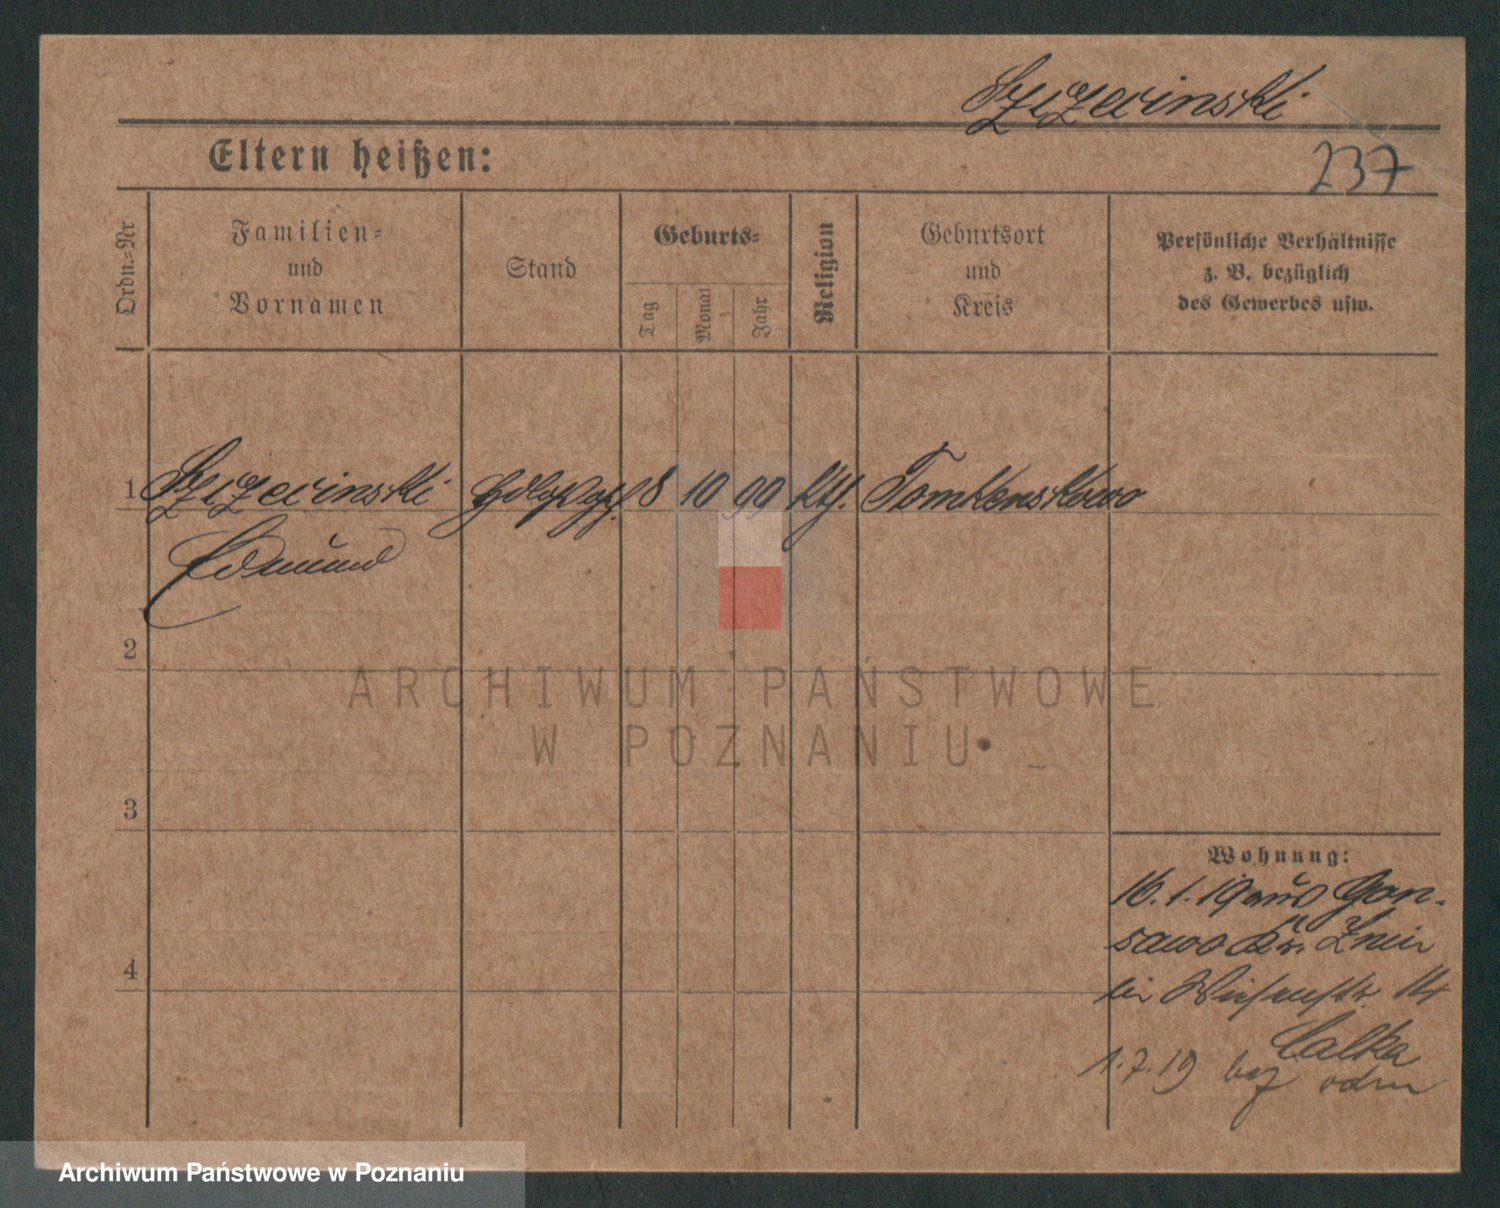 Szczecinski
Eltern heißen:
237
Ordn.-Nr
Familien-
und
Vornamen
Stand
Geburts-
Tag
Monat
Jahr
Religion
Geburtsort
und
Kreis
Persönliche Verhältnisse
z. B. bezüglich
des Gewerbes usw.
1 8 10 99 kth.
Edmund
2
ARCHIWUM PAŃSTWOWE
W POZNANIU
3
Wohnung:
16.1.19 aus Gon-
sawo Kr. Znin
4
bei Wiesenstr. 14
Calka
1.7.19
Archiwum Państwowe w Poznaniu